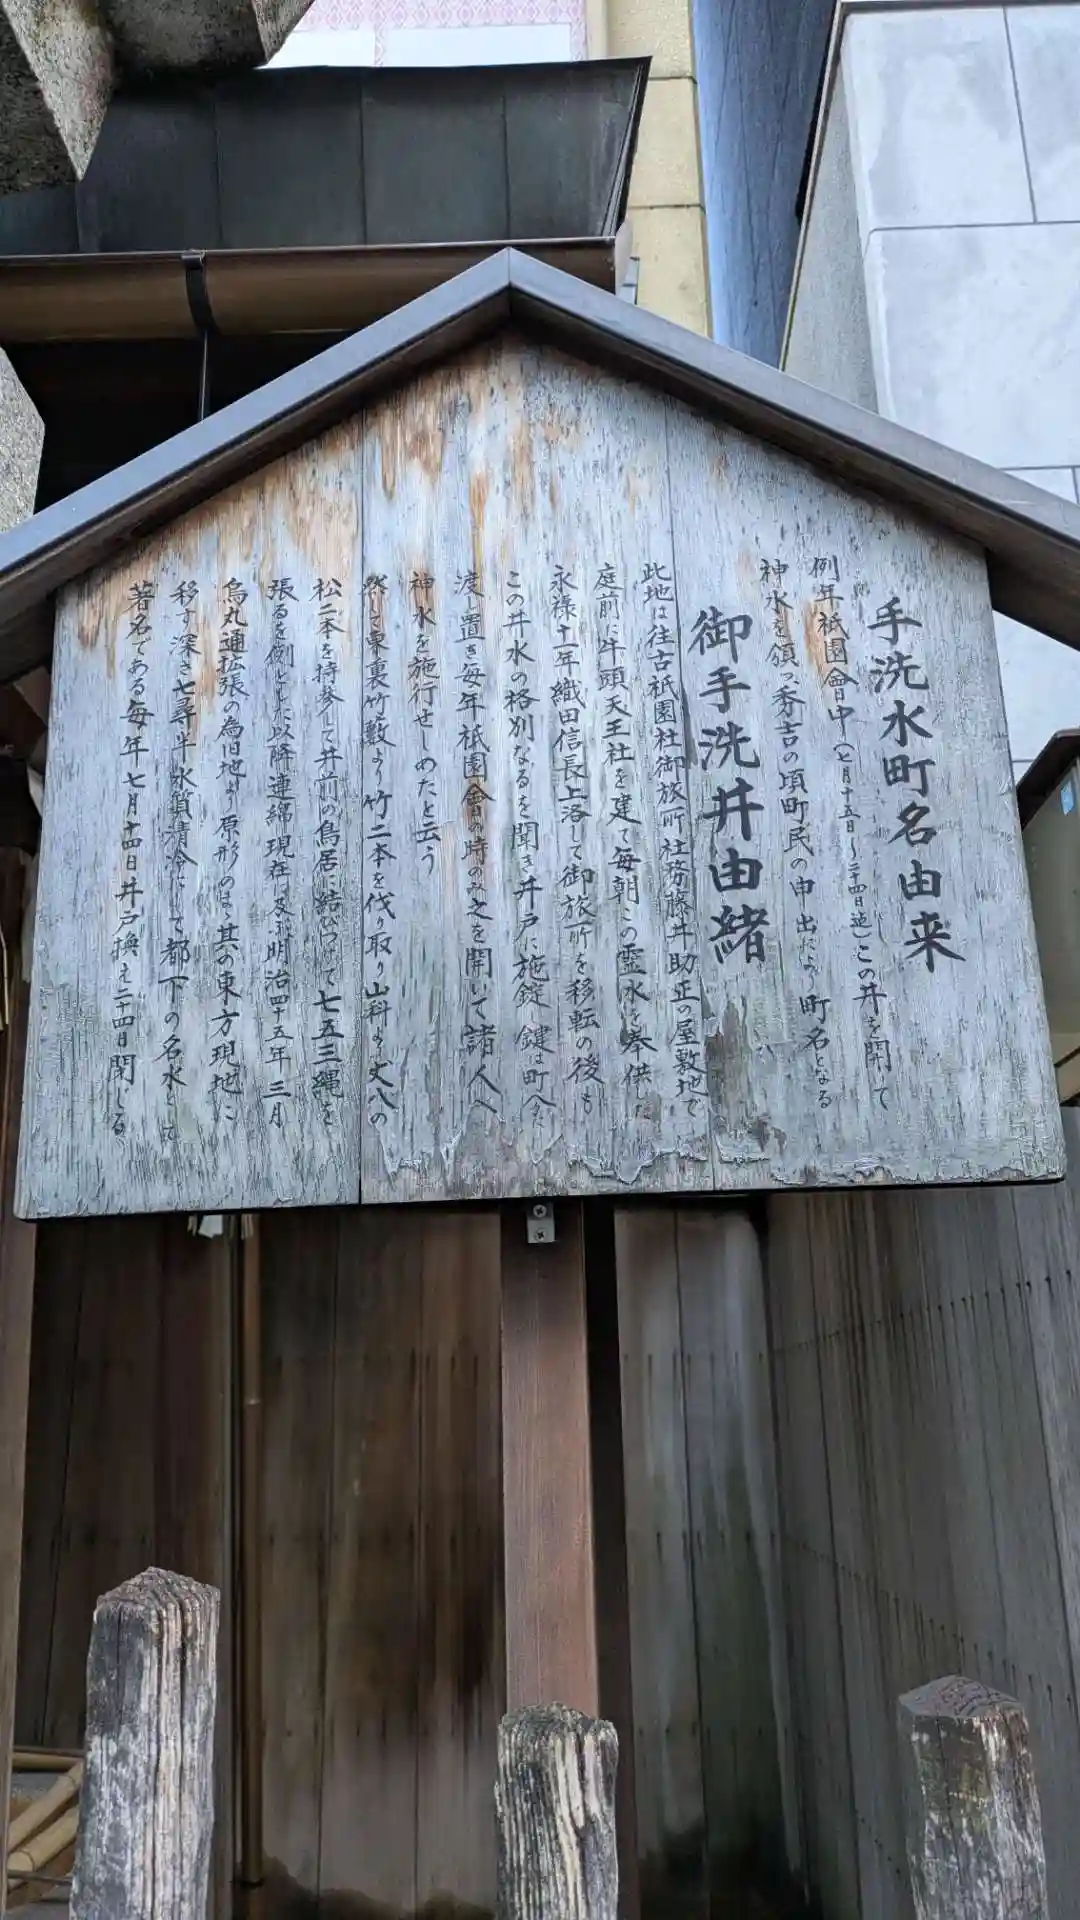 手洗水町名由来
例年祇園會中(七月十五日〜二十四日迄)この井を開いて
神水を領つ秀吉の頃町民の申出により町名となる
御手洗井由緒
此地は往古祇園社御旅所社務藤井助正の屋敷地で
庭前に牛頭天王社を建て毎朝この霊水を奉供した
永禄十一年織田信長上洛して御旅所を移転の後も
この井水の格別なるを聞き井戸に施錠鍵は町へ
渡し置き毎年祇園會の時のみ之を開いて諸人へ
神水を施行せしめたと云う
然して東裏竹藪より竹二本を伐り取り山科より丈八の
松二本を持参して井前の鳥居に結びつけて七五三縄を
張るを例とした以降連綿現在に及ぶ明治四十五年三月
烏丸通拡張の為旧地より原形のまゝ其の東方現地に
移す深さ七尋半水質清冷にして都下の名水として
著名である毎年七月十四日井戸換え二十四日閉じる